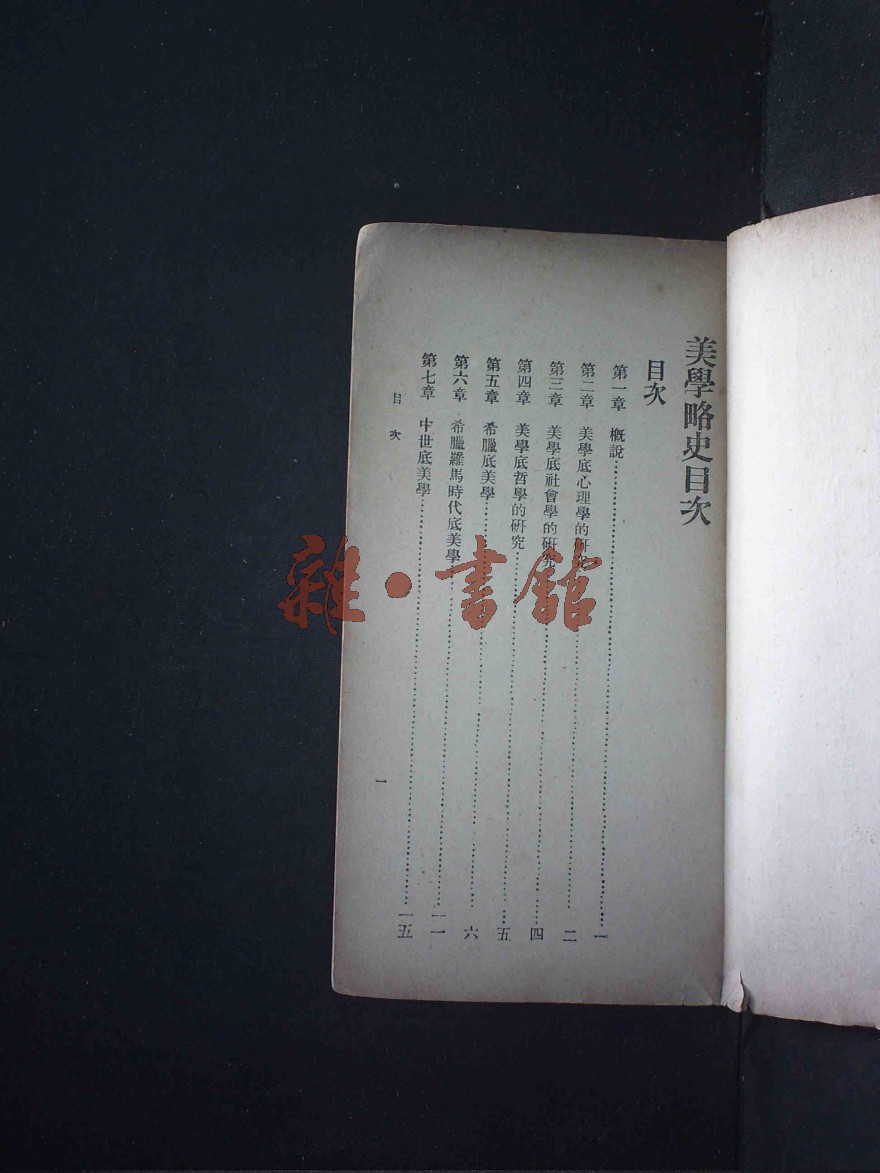 美學略史目次
目次
第一章 概說……一
第二章 美學底心理學的硏究……二
第三章 美學底社會學的硏究……四
第四章 美學底哲學的硏究……五
第五章 希臘底美學……六
第六章 希臘羅馬時代底美學……一一
第七章 中世底美學……一五
目次 一
雜·書館